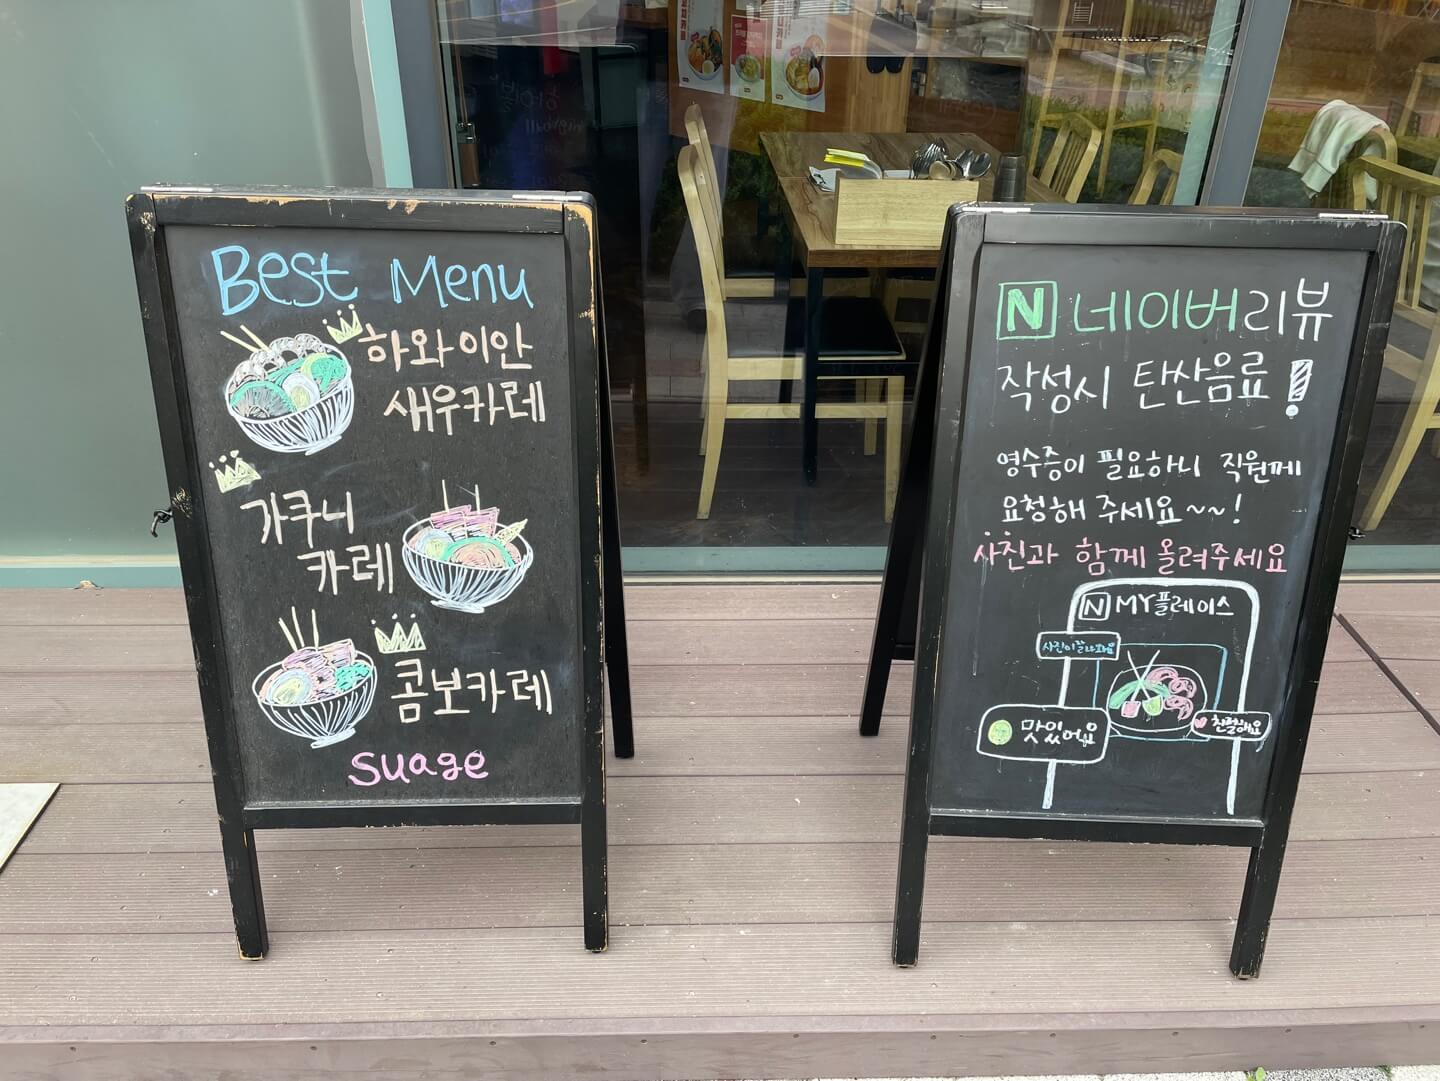 Best Menu
하와이안
새우카레
가쿠니
카레
콤보카레
suage
N 네이버리뷰
작성시 탄산음료!
영수증이 필요하니 직원께
요청해 주세요~~!
사진과 함께 올려주세요
N MY플레이스
사진이 잘 나와요
맛있어요
친절해요